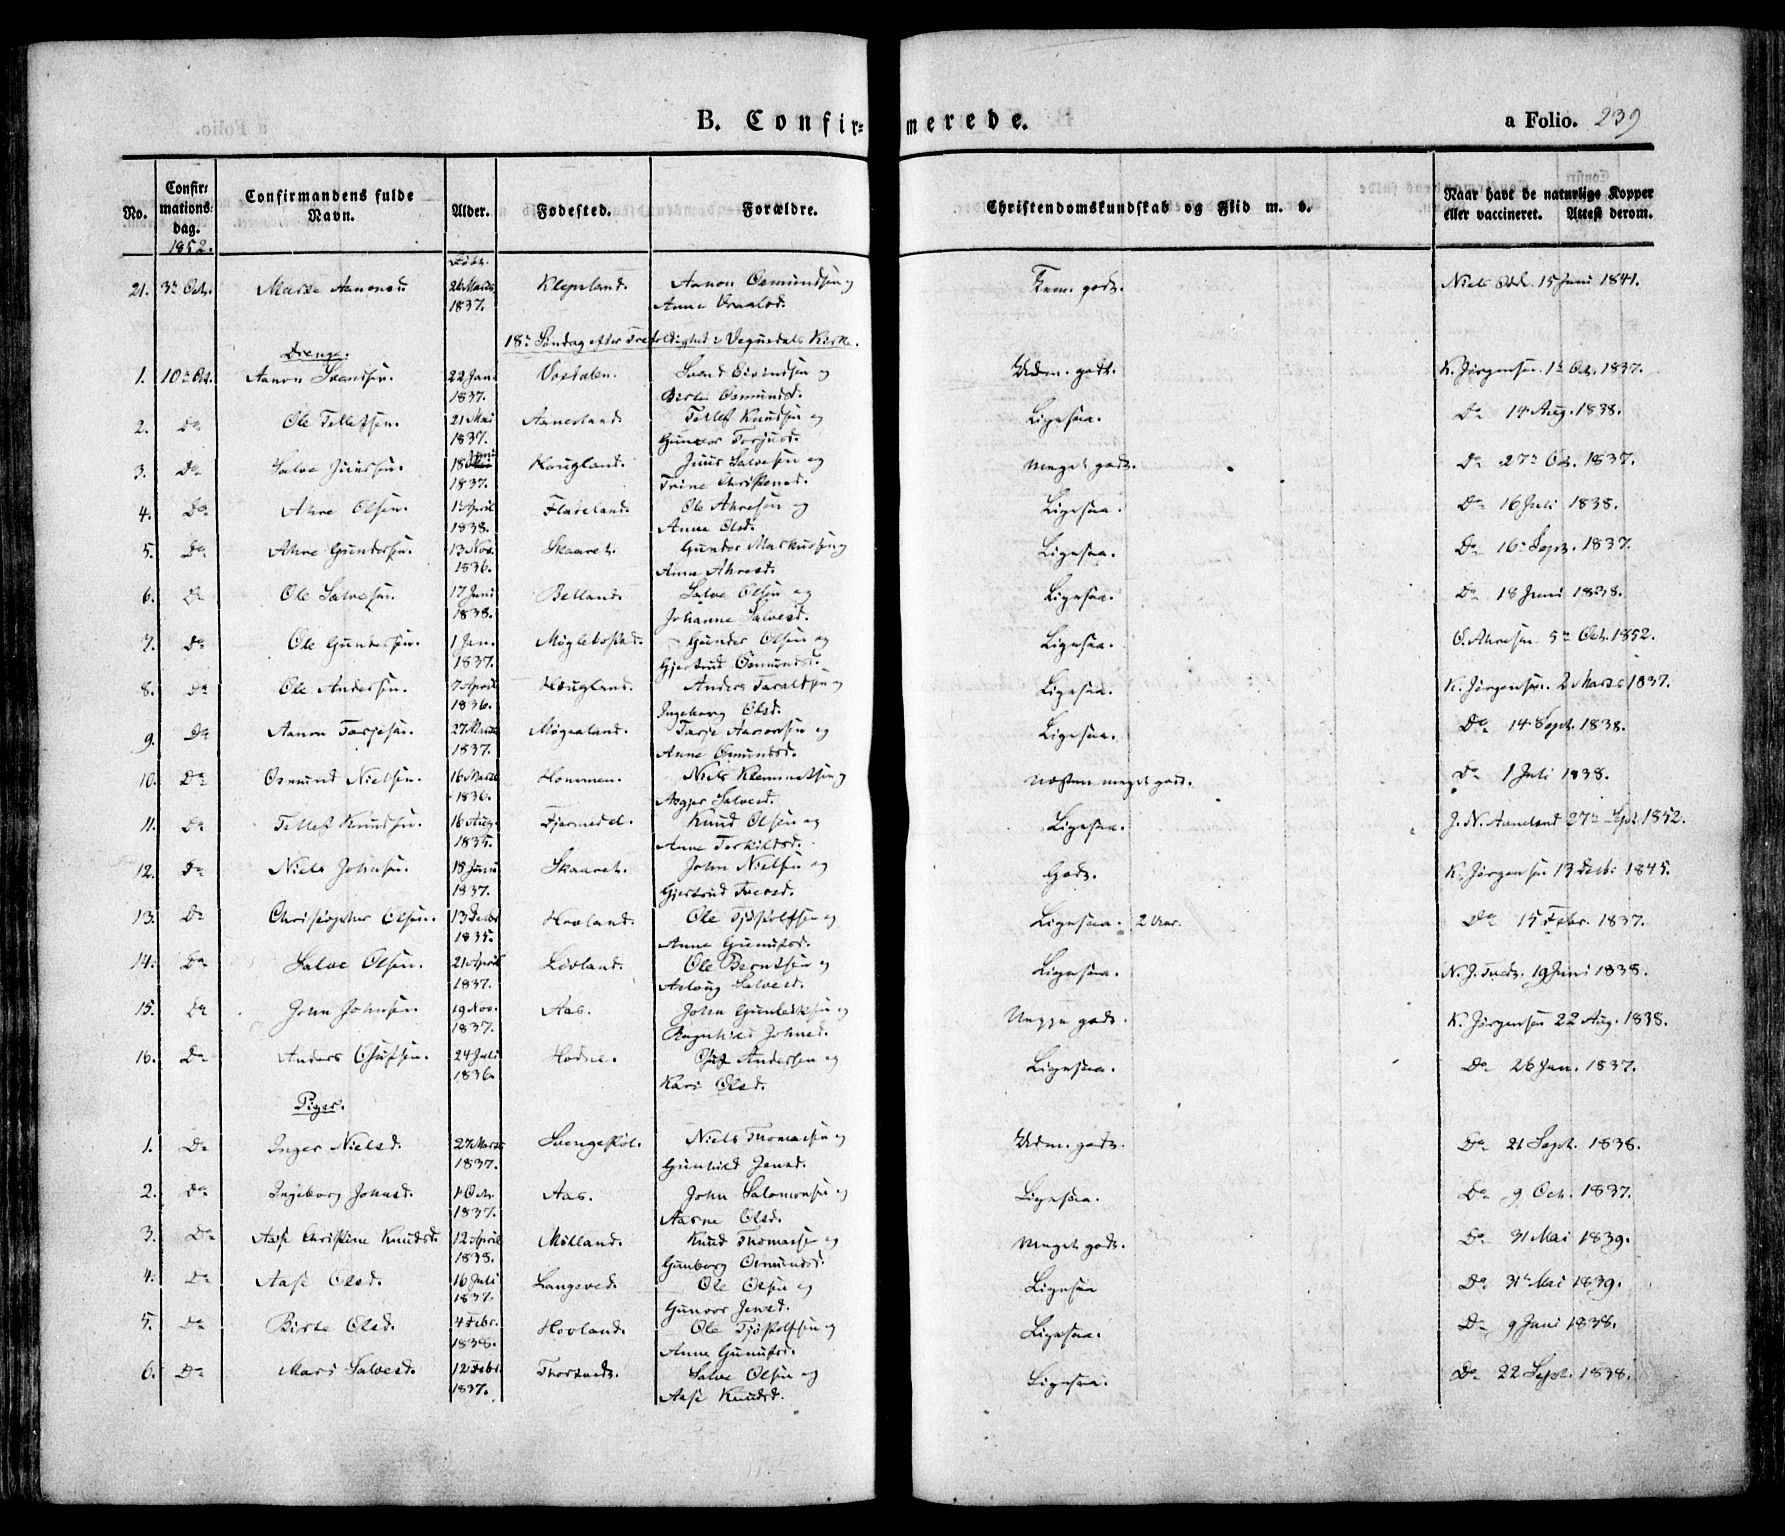 B. Confir-merede.
a Folio. 239
No. Confirmationsdag. Confirmandens fulde Navn. Alder. Fødested. Forældre. Christendomskundskab og Flid m. v. Naar havt de naturlige Kopper eller vaccineret. Attest derom.
1852. Født.
21. 3de Oct. 26 Marts Klepsland. Aanon Osmundsen og Tem. godt. Niels Odd. 15 Juni 1841.
1837. Anne
18de Søndag efter Trefoldighed i Vegusdals Kirke.
Drenge.
1. 10de Oct. Aanon Svendsen. 22 Jan. Vosdalen. Svend Eivindsen og Udm. godt. K. Jørgensen 1ste Oct. 1837.
1837. Birte Osmundsd.
2. Do Ole Tellefsen. 21 Mai Aanesland. Tellef Knudsen og Ligesaa. Do 14 Aug. 1838.
1837. Gunvor Torjusd.
3. Do Salve Juulsen. 18 Hougland. Juul Salvesen og Meget godt. Do 27de Oct. 1837.
1837. Trine Christensd.
4. Do Ahre Olsen. 1 April Flateland. Ole Ahresen og Ligesaa. Do 16 Juli 1838.
1838. Anne Olsd.
5. Do Ahre Gundersen. 13 Nov. Skaaret. Gunder Markussen og Ligesaa. Do 16de Sept. 1837.
1836. Anne Ahresd.
6. Do Ole Salvesen. 17 Juni Belland. Salve Olsen og Ligesaa. Do 18 Juni 1838.
1838. Johanne Salvesd.
7. Do Ole Gundersen. 1 Jan. Møglebostad. Gunder Olsen og Ligesaa. O. Ahresen 5te Oct. 1852.
1837. Gjertrud Osmundsd.
8. Do Ole Andersen. 7 April Hougland. Anders Taraldsen og Ligesaa. K. Jørgensen 2 Marts 1837.
1836. Ingeborg Olsd.
9. Do Aanon Tarjesen. 27 Marts Møgaland. Tarje Aanonsen og Ligesaa. Do 14 Sept. 1838.
1837. Anne Osmundsd.
10. Do Osmund Nielsen. 16 Marts Hommen. Niels Klemmetsen og Næsten meget godt. Do 1 Juli 1838.
1836. Asgjer Salvesd.
11. Do Tellef Knudsen. 16 Aug. Fjermedal. Knud Olsen og Ligesaa. J. N. Aaneland 27de Sept. 1852.
1835. Anne Terkildsd.
12. Do Niels Johnsen. 18 Juni Skaaret. John Nielsen og Godt. K. Jørgensen 13 Decbr. 1845.
1837. Gjertrud
13. Do Christopher Olsen. 13 Decbr Hovland. Ole Tjøstolfsen og Ligesaa. 2 Uker. Do 15 Febr. 1837.
1835. Anne Gunufsd.
14. Do Salve Olsen. 21 April Lövland. Ole Berntsen og Ligesaa. N. J. Tvedt. 19 Juni 1838.
1837. Aslaug Salvesd.
15. Do John Johnsen. 19 Nov. Aas. John Gunleiksen og Megje godt. K. Jørgensen 22 Aug. 1838.
1837. Ragnhild Johnsd.
16. Do Anders 24 Juli Hodne. Andersen og Ligesaa. Do 26 Jan. 1837.
1836. Kari Olsd.
Piger.
1. Do Inger Nielsd. 27 Marts Svengeskol. Niels Thomassen og Udm. godt. Do 21 Sept. 1838.
1837. Gunhild Jensd.
2. Do Ingeborg Johnsd. 1 Oct. Aas. John Salomonsen og Ligesaa. Do 9 Oct. 1837.
1837. Olsd.
3. Do Aase Christine Knudsd. 12 April Mölland. Knud Thomassen og Meget godt. Do 31 Mai 1839.
1838. Gunborg Osmundsd.
4. Do Aase Olsd. 16 Juli Langeved. Ole Olsen og Ligesaa Do 31te Mai 1839.
1837. Gunvor Jensd.
5. Do Birte Olsd. 4 Febr. Hovland. Ole Tjøstolfsen og Ligesaa. Do 9 Juni 1838.
1838. Anne Gunufsd.
6. Do Mari Salvesd. 12 Febr. Thortvedt. Salve Olsen og Ligesaa. Do 22 Sept. 1838.
1837. Aase Knudsd.